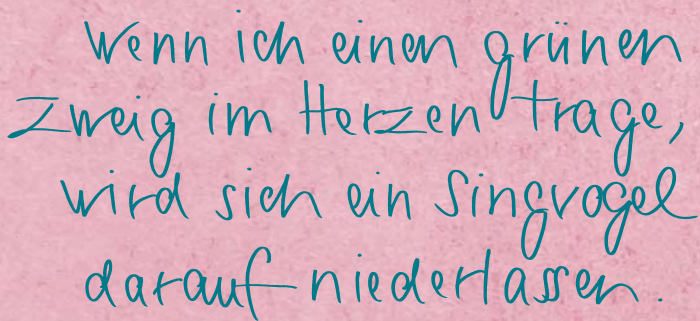 Wenn ich einen grünen
Zweig im Herzen trage,
wird sich ein Singvogel
darauf niederlassen.